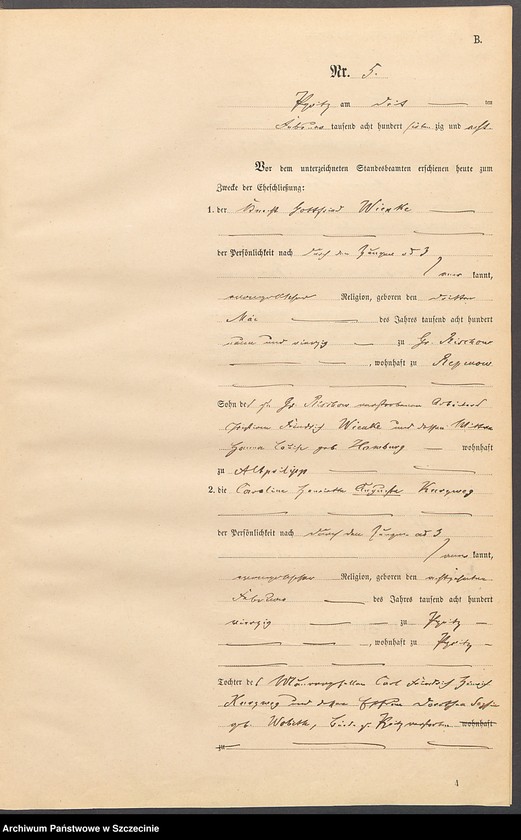 B.
Nr. 5.
Pyritz am
Februar tausend acht hundert sieben zig und acht.
Vor dem unterzeichneten Standesbeamten erschienen heute zum
Zwecke der Eheschließung:
1. der Knecht Gottfried Wienke
der Persönlichkeit nach durch den Zeugen ad 3
kannt,
evangelischer Religion, geboren den dritten
Mai des Jahres tausend acht hundert
neun und vierzig zu Gr. Rischow
, wohnhaft zu Repenow
Sohn des zu Gr. Rischow verstorbenen Arbeiters
Friedrich Wienke und dessen Wittwe
geb. Hamburg wohnhaft
zu
2. die Caroline Henriette Auguste
der Persönlichkeit nach durch den Zeugen ad 3
kannt,
evangelischer Religion, geboren den achtzehnten
Februar des Jahres tausend acht hundert
vierzig zu Pyritz
, wohnhaft zu Pyritz
Tochter des Maurergesellen Carl Friedrich
und dessen Ehefrau Dorothea
geb. Beide zu Pyritz verstorben wohnhaft
zu
4
Archiwum Państwowe w Szczecinie